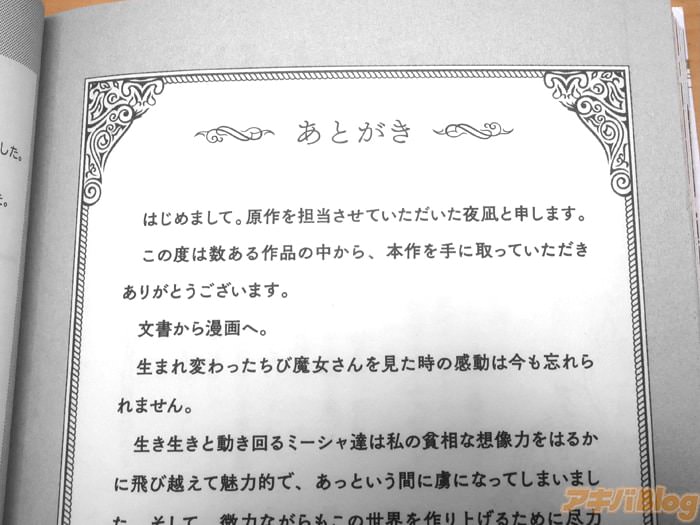 した。
た。
あとがき
はじめまして。原作を担当させていただいた夜凪と申します。
この度は数ある作品の中から、本作を手に取っていただき
ありがとうございます。
文書から漫画へ。
生まれ変わったちび魔女さんを見た時の感動は今も忘れら
れません。
生き生きと動き回るミーシャ達は私の貧相な想像力をはるか
に飛び越えて魅力的で、あっという間に虜になってしまいまし
た。そして、微力ながらもこの世界を作り上げるために尽力
アキバBlog